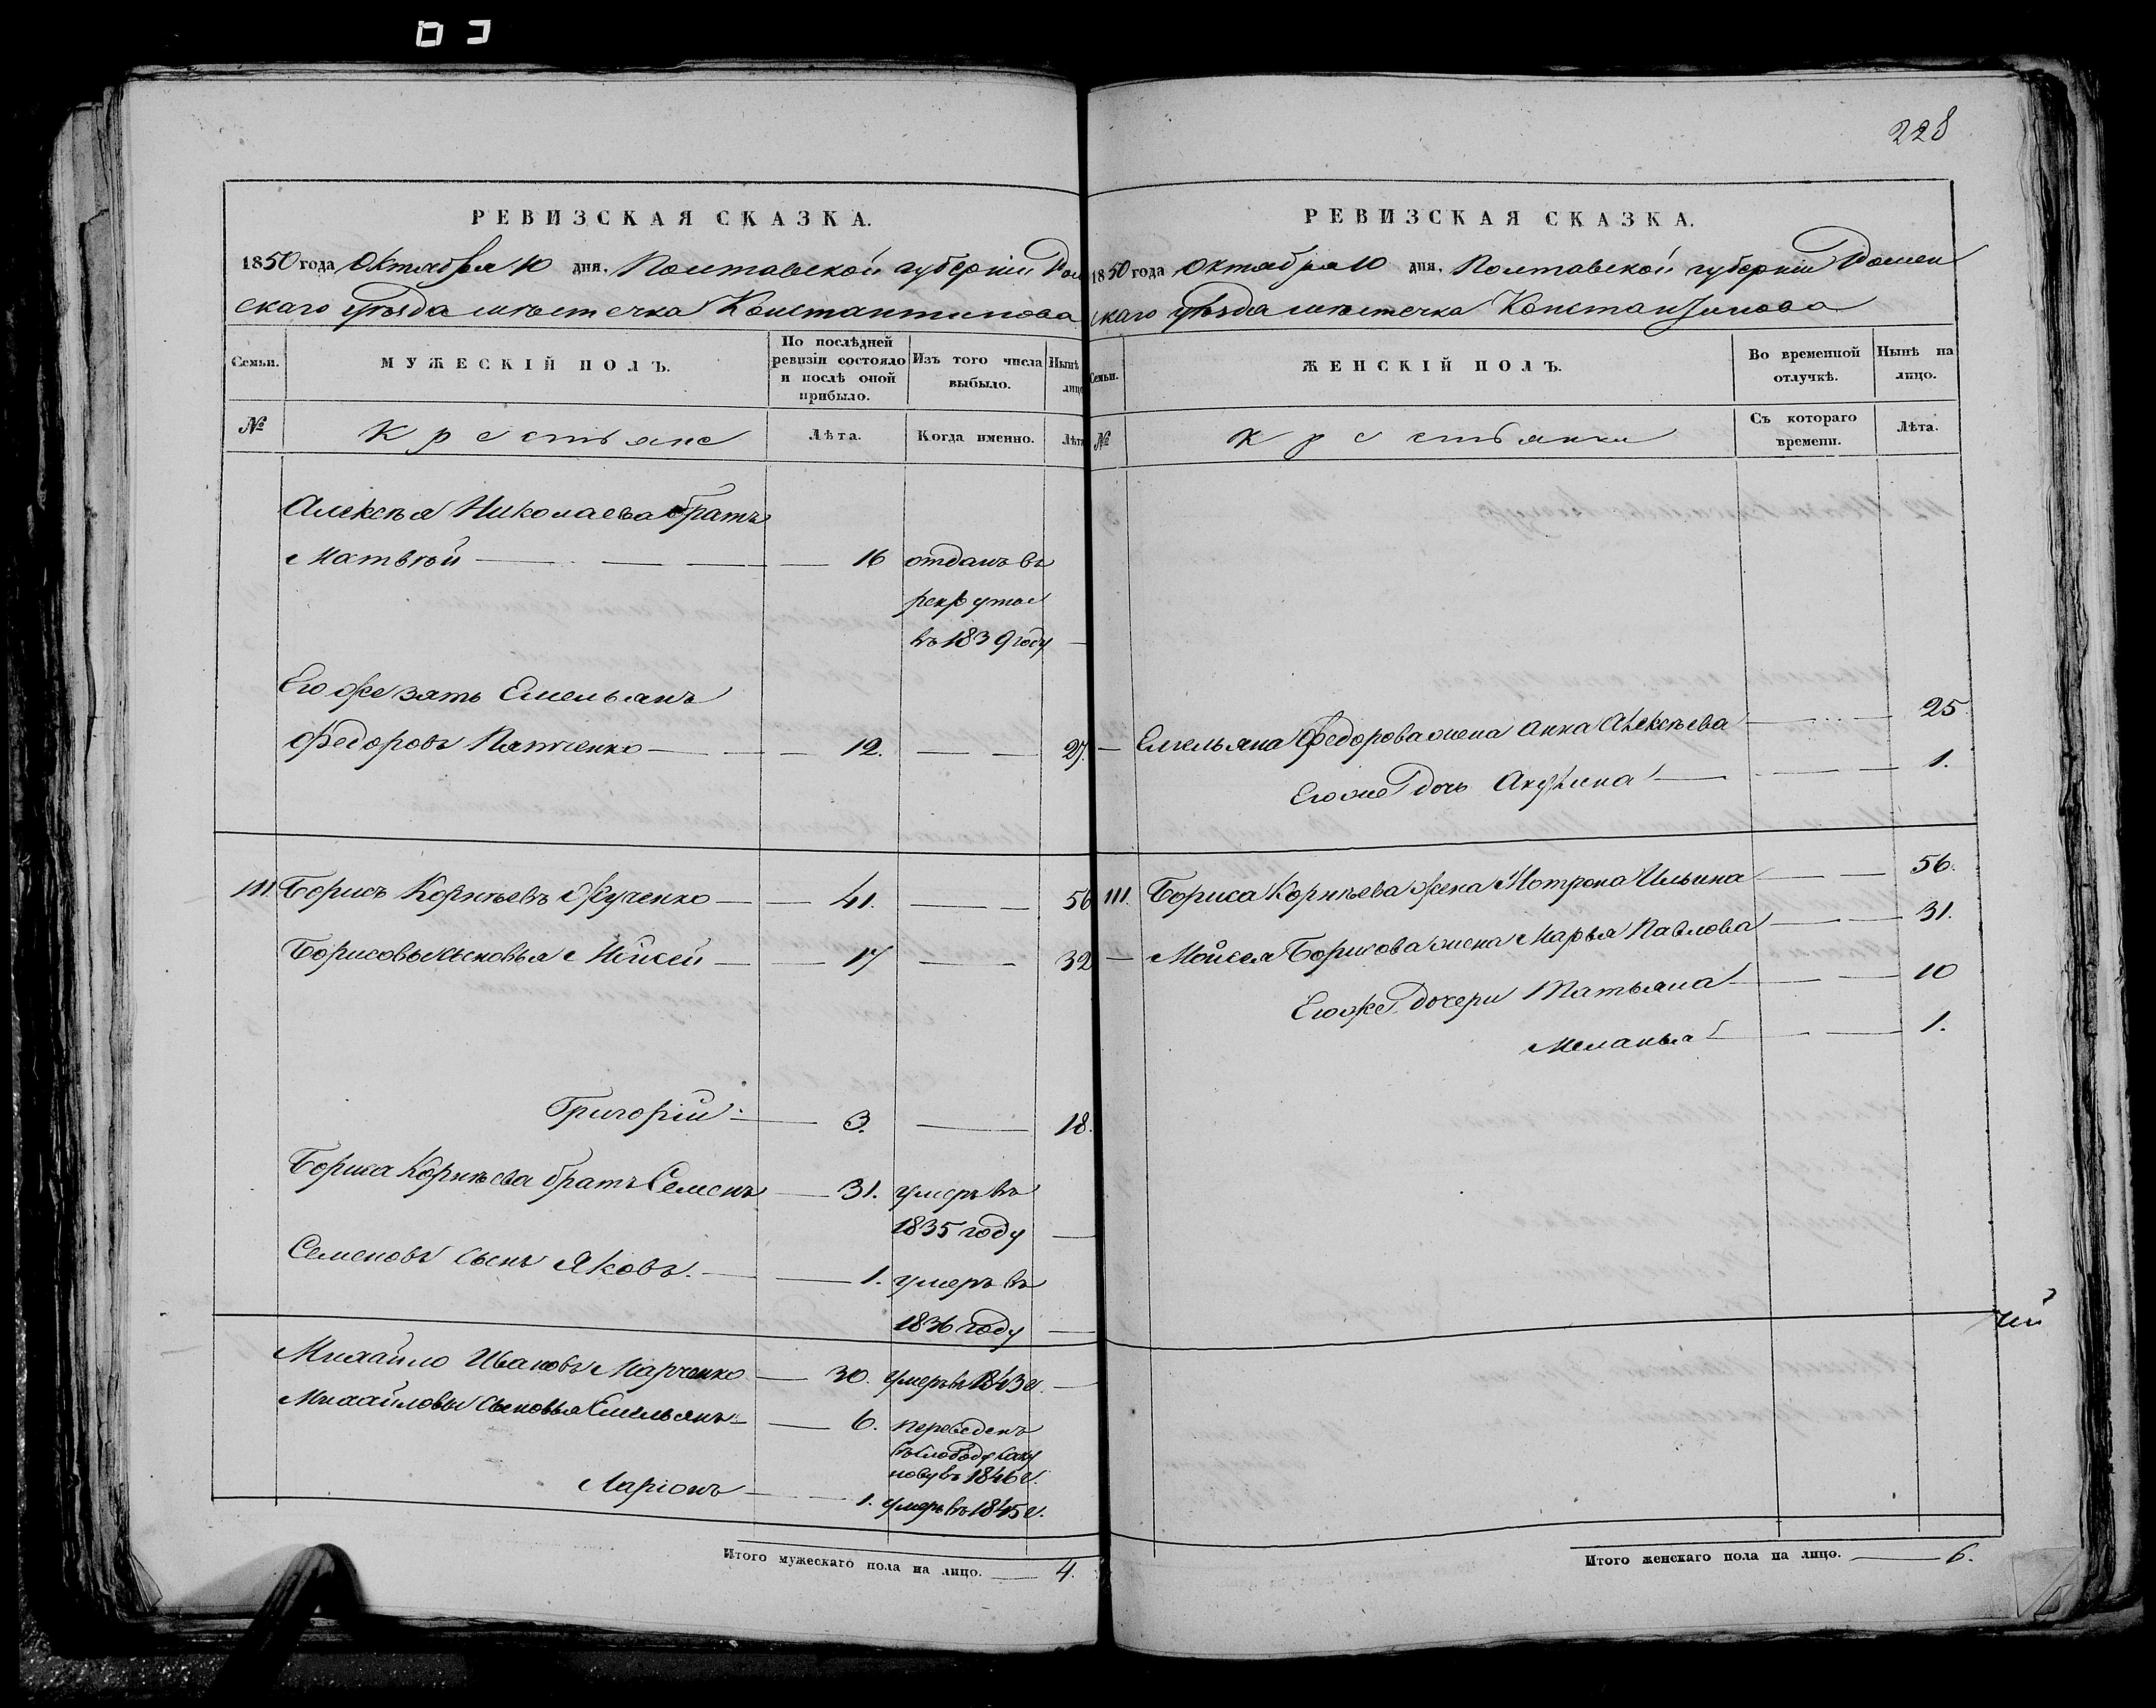 228
РЕВИЗСКАЯ СКАЗКА.
1850 года Октября 10 дня, Полтавской губерніи Ром
скаго уѣзда мѣстечка Константинова
Семьи.
МУЖЕСКІЙ ПОЛЪ.
По послѣдней ревизіи состояло и послѣ оной прибыло.
Изъ того числа выбыло.
Нынѣ лицо
№
Крестьяне
Лѣта.
Когда именно.
Лѣта
Алексѣя Николаева братъ
Матвѣй 16 отданъ въ
рекруты
въ 1839 году
Его же зять Емельянъ
Федоровъ 12. 27.
111. Борисъ Корнѣевъ 41. 56
Борисовы сыновья Мойсей 17 32
Григорій 3. 18.
Бориса Корнѣева братъ Семенъ 31. умеръ въ
1835 году
Семеновъ сынъ Яковъ. 1. умеръ въ
1836 году
Михайло Ивановъ Марченко 30. умеръ въ 1843 г.
Михайловы сыновья Емельянъ 6. переведенъ
въ слободу
въ 1846 г.
Ларіонъ 1. умеръ въ 1845 г.
Итого мужескаго пола на лицо. 4.
РЕВИЗСКАЯ СКАЗКА.
1850 года Октября 10 дня, Полтавской губерніи Ромен
скаго уѣзда мѣстечка Константинова
Семьи.
ЖЕНСКІЙ ПОЛЪ.
Во временной отлучкѣ.
Нынѣ на лицо.
№
Крестьянки
Съ котораго времени.
Лѣта.
Емельяна Федорова жена Анна Алексѣева 25
Его же дочь Акулина 1.
111. Бориса Корнѣева жена Мотрона Ильина 56.
Мойсея Борисова жена Марья Павлова 31.
Его же дочери Татьяна 10
Меланья 1.
Итого женскаго пола на лицо. 6.